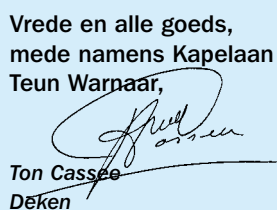 Vrede en alle goeds,
mede namens Kapelaan
Teun Warnaar,
Ton Cassee
Deken